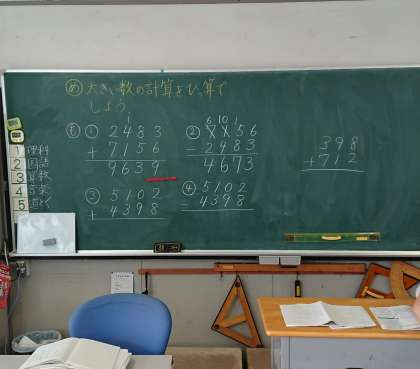 め 大きい数の計算をひっ算で
しよう
も ① 2483
+ 7156
9639
② 7156
- 2483
4673
③ 5102
+ 4398
④ 5102
- 4398
398
+ 712
1 理科
2 国語
3 算数
4 音楽
5 道とく